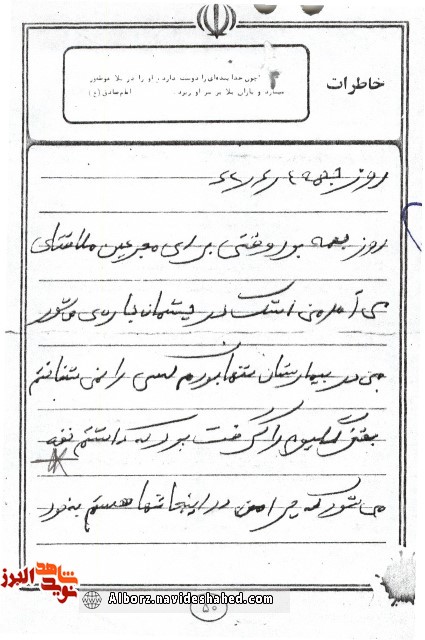 خاطرات
چون خدا بنده‌ای را دوست دارد او را در بلا غوطه‌ور
میسازد و باران بلا بر سر او ریزد. امام صادق (ع)
روز جمعه
روز جمعه بود وقتی برای مجرحین ملاقاتی
می آمد من اشک در چشمانم پاره می شود
من در بیمارستان تنها بودم کسی را نمی شناختم
بغض گلویم را گرفت بود که داشتم خفه
می شود که چرا من در اینجا تنها هستم به خود
شاهد
نوید
البرز
Alborz.navideshahed.com
۵۰